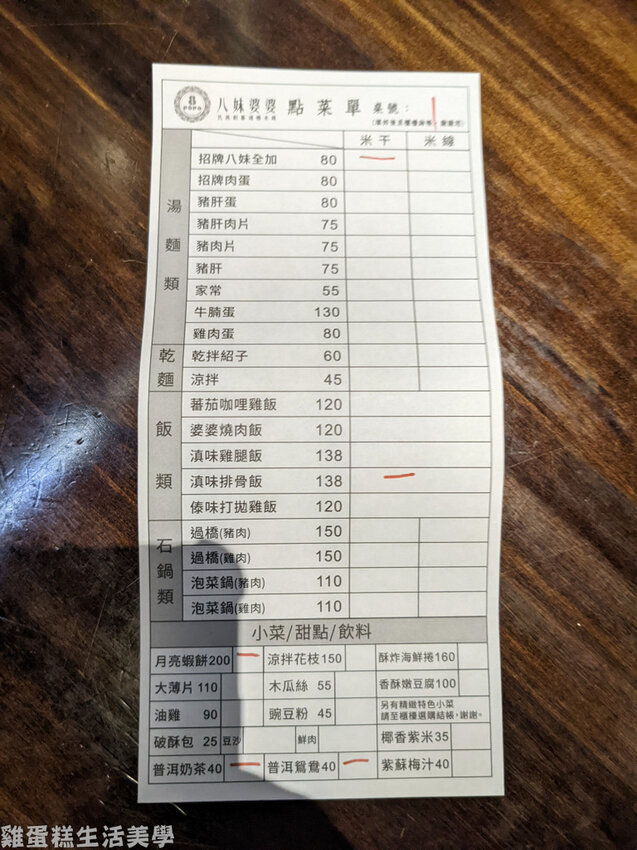 8
POPO
八妹婆婆 點菜單 桌號：
米干 米線
湯麵類
招牌八妹全加 80
招牌肉蛋 80
豬肝蛋 80
豬肝肉片 75
豬肉片 75
豬肝 75
家常 55
牛腩蛋 130
雞肉蛋 80
乾麵
乾拌紹子 60
涼拌 45
飯類
蕃茄咖哩雞飯 120
婆婆燒肉飯 120
滇味雞腿飯 138
滇味排骨飯 138
傣味打拋雞飯 120
石鍋類
過橋(豬肉) 150
過橋(雞肉) 150
泡菜鍋(豬肉) 110
泡菜鍋(雞肉) 110
小菜/甜點/飲料
月亮蝦餅200 涼拌花枝150 酥炸海鮮捲160
大薄片110 木瓜絲 55 香酥嫩豆腐100
油雞 90 豌豆粉 45 另有精緻特色小菜
請至櫃檯選購結帳，謝謝。
破酥包 25 豆沙 鮮肉 椰香紫米35
普洱奶茶40 普洱鴛鴦40 紫蘇梅汁40
雞蛋糕生活美學